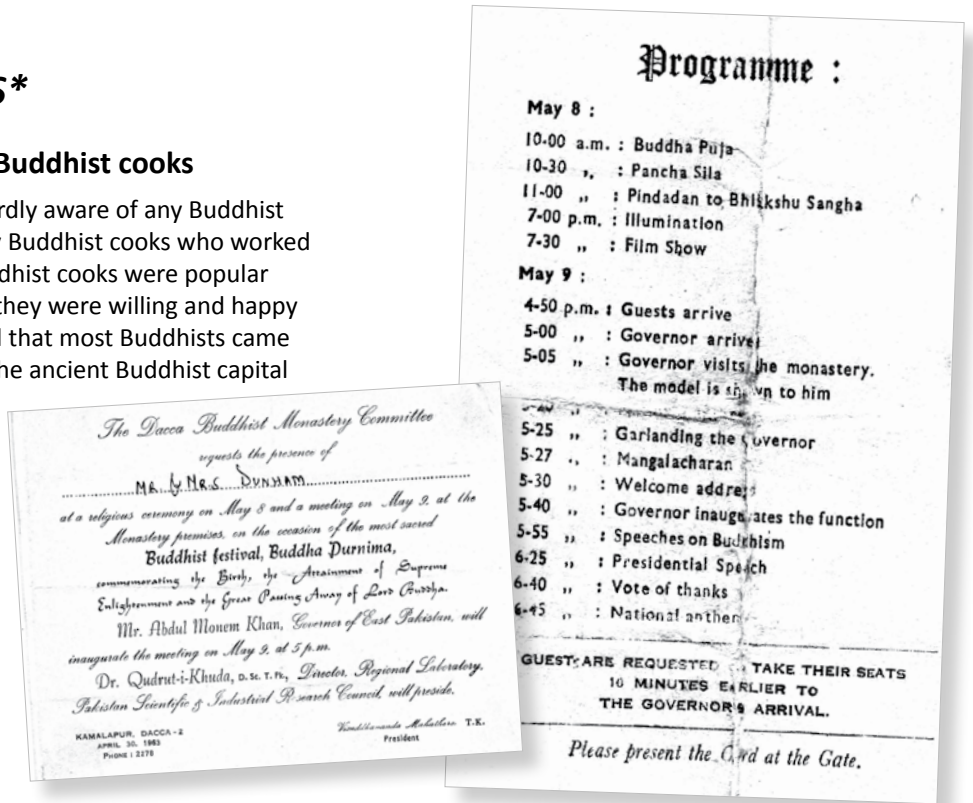 S*
Buddhist cooks
rdly aware of any Buddhist
Buddhist cooks who worked
ddhist cooks were popular
they were willing and happy
that most Buddhists came
he ancient Buddhist capital
The Dacca Buddhist Monastery Committee
requests the presence of
MR. & MRS. DUNHAM
at a religious ceremony on May 8 and a meeting on May 9. at the
Monastery premises, on the occasion of the most sacred
Buddhist festival, Buddha Purnima,
commemorating the Birth, the Attainment of Supreme
Enlightenment and the Great Passing Away of Lord Buddha.
Mr. Abdul Monem Khan, Governor of East Pakistan, will
inaugurate the meeting on May 9, at 5 p.m.
Dr. Qudrut-i-Khuda, D.Sc. Director, Regional Laboratory,
Pakistan Scientific & Industrial Research Council, will preside.
KAMALAPUR, DACCA-2
APRIL 30, 1963
PHONE : 2278
T.K.
President
Programme :
May 8 :
10-00 a.m. : Buddha Puja
10-30 ,, : Pancha Sila
11-00 ,, : Pindadan to Bhikkshu Sangha
7-00 p.m. : Illumination
7-30 ,, : Film Show
May 9 :
4-50 p.m. : Guests arrive
5-00 ,, : Governor arrives
5-05 ,, : Governor visits the monastery.
The model is shown to him
5-25 ,, : Garlanding the Governor
5-27 ,, : Mangalacharan
5-30 ,, : Welcome address
5-40 ,, : Governor inaugurates the function
5-55 ,, : Speeches on Budhism
6-25 ,, : Presidential Speech
6-40 ,, : Vote of thanks
6-45 ,, : National anthem
GUEST ARE REQUESTED TAKE THEIR SEATS
10 MINUTES EARLIER TO
THE GOVERNOR'S ARRIVAL.
Please present the Card at the Gate.